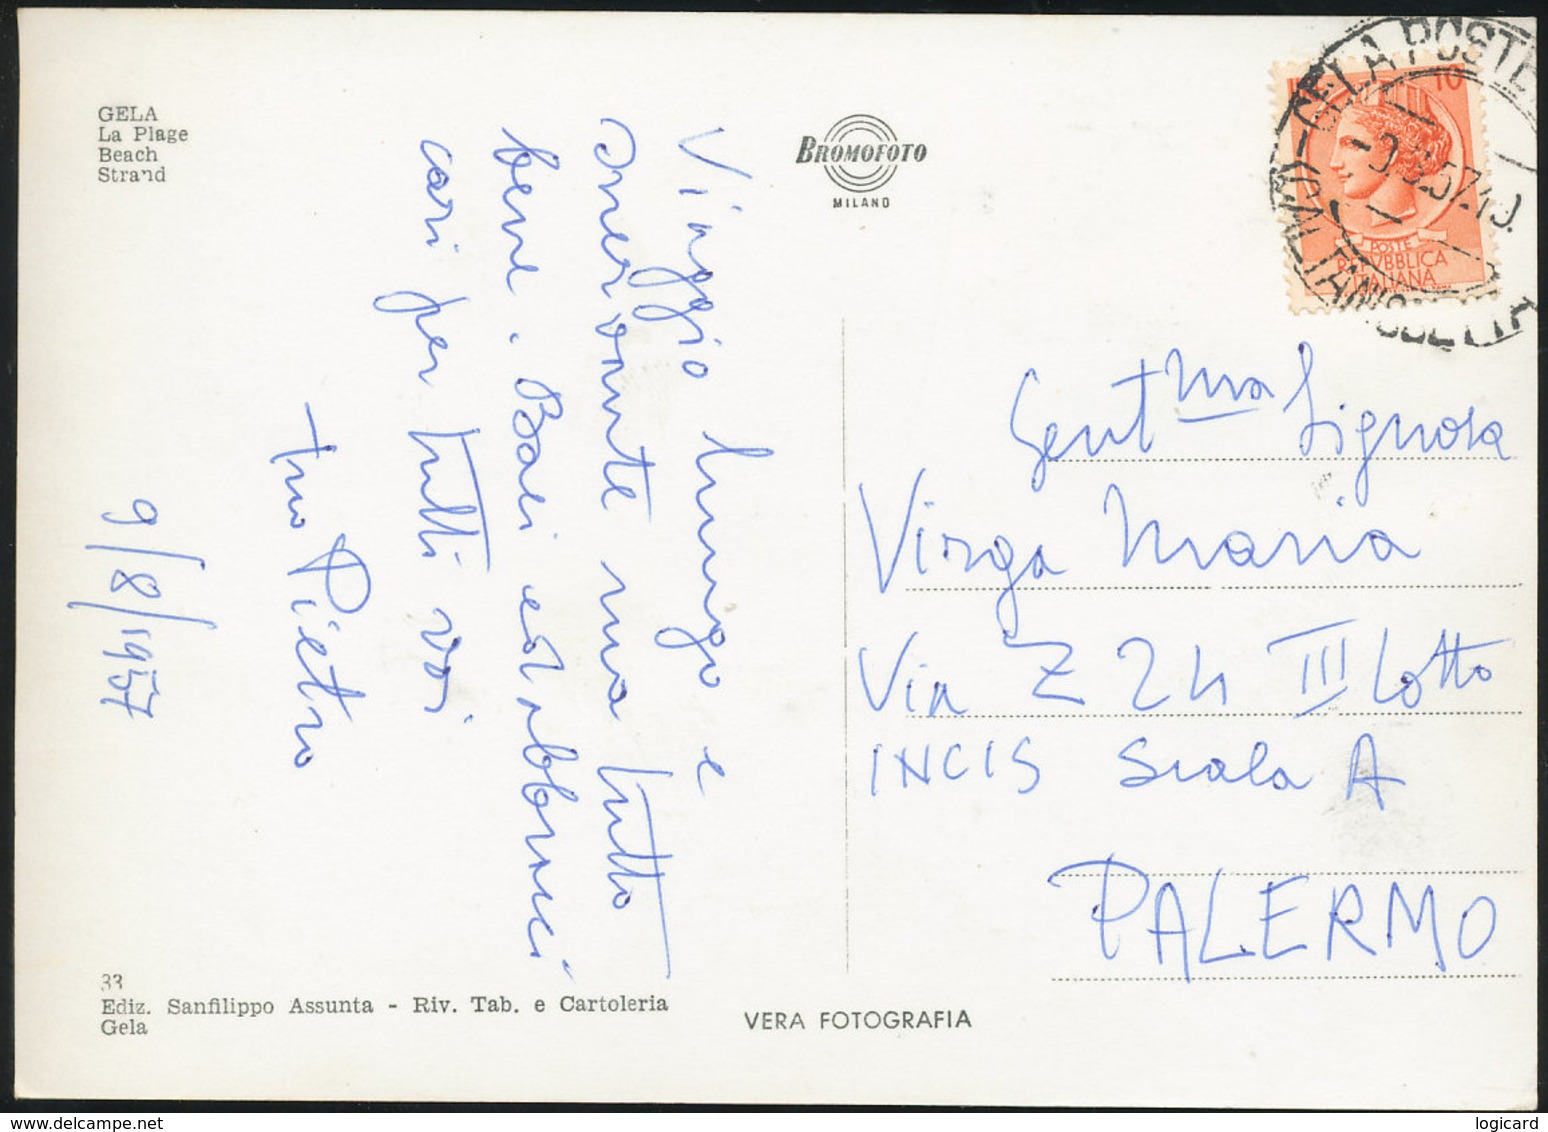 GELA
La Plage
Beach
Strand
BROMOFOTO
MILANO
GELA POSTE
10
POSTE
REPVBBLICA
ITALIANA
Viaggio lungo e
snervante ma tutto
bene. Baci ed abbracci
cari per tutti voi
tuo Pietro
9/8/1957
Gent.ma Signora
Virga Maria
Via Z 24 III Lotto
INCIS Scala A
PALERMO
33
Ediz. Sanfilippo Assunta - Riv. Tab. e Cartoleria
Gela
VERA FOTOGRAFIA
www.delcampe.net
logicard